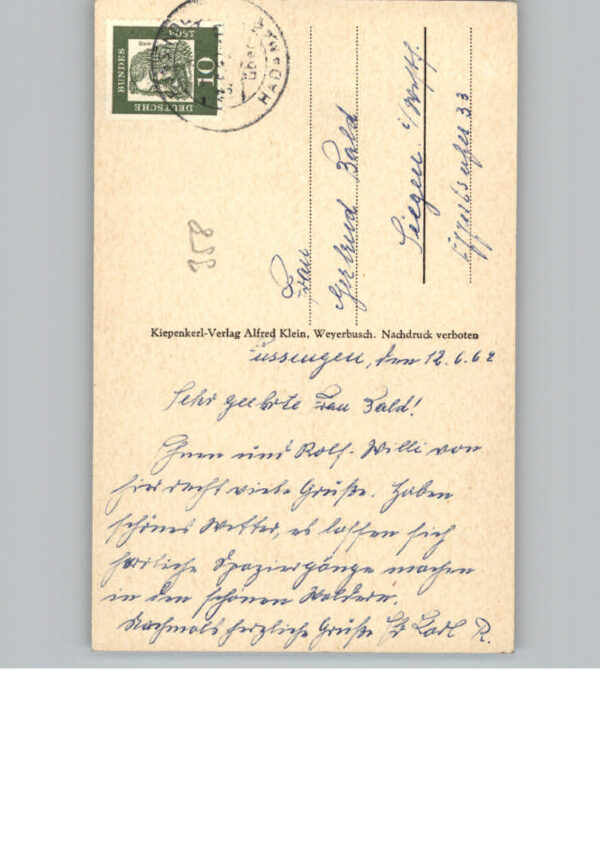 DEUTSCHE
BUNDES
POST
10
Dürer
über
HADAMAR
358
Frau
Gertrud Bald
Siegen i/Westf.
33
Kiepenkerl-Verlag Alfred Klein, Weyerbusch. Nachdruck verboten
Fussingen, den 12.6.62
Sehr geehrte Frau Bald!
Ihnen und Rolf-Willi von
hier recht viele Grüße. Haben
schönes Wetter, es lassen sich
herrliche Spaziergänge machen
in den schönen Wäldern.
Nochmals herzliche Grüße Ihr Karl R.